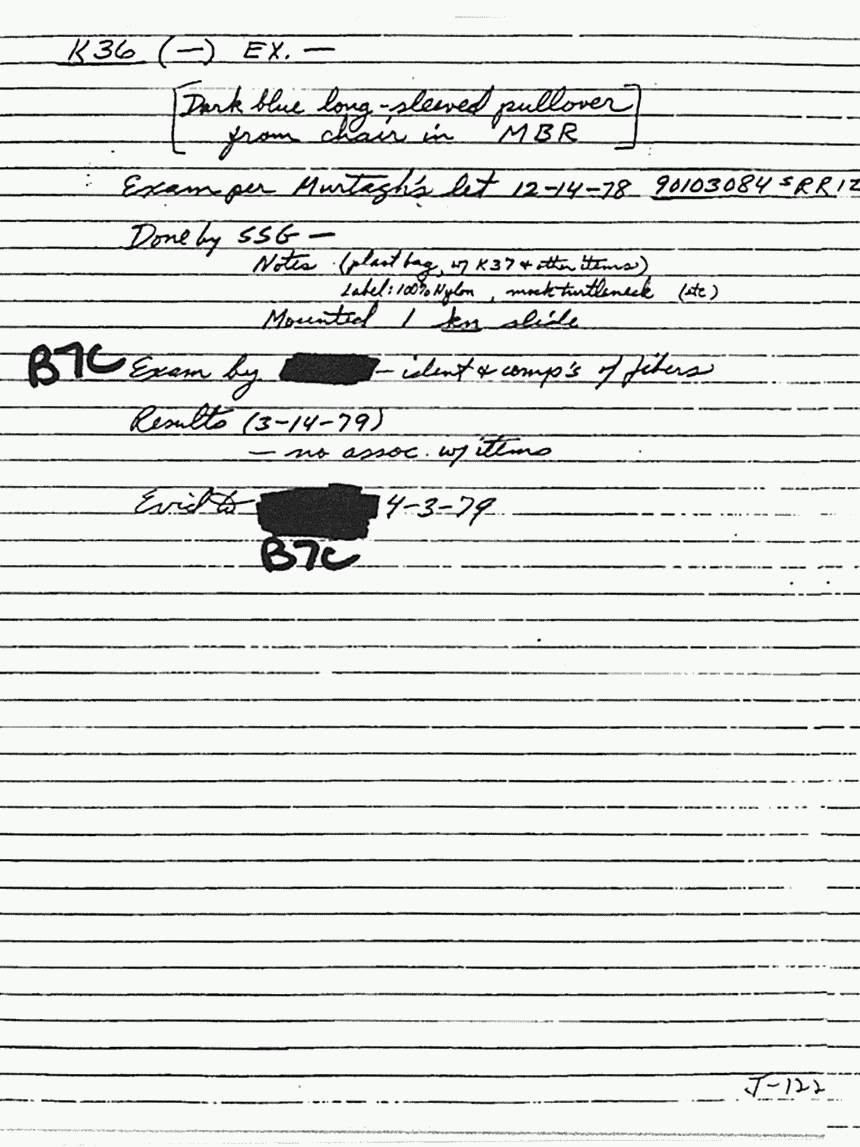 K36 (—) EX. —
[Dark blue long-sleeved pullover
from chair in MBR]
Exam per Murtagh's let 12-14-78 90103084 S RR 12
Done by SSG —
Notes (plast bag, w/ K37 & other items)
Label: 100% Nylon, mock turtleneck (etc)
Mounted 1 kn slide
B7C Exam by — ident & comp's of fibers
Results (3-14-79)
— no assoc. w/ items
Evid to 4-3-79
B7C
J-122